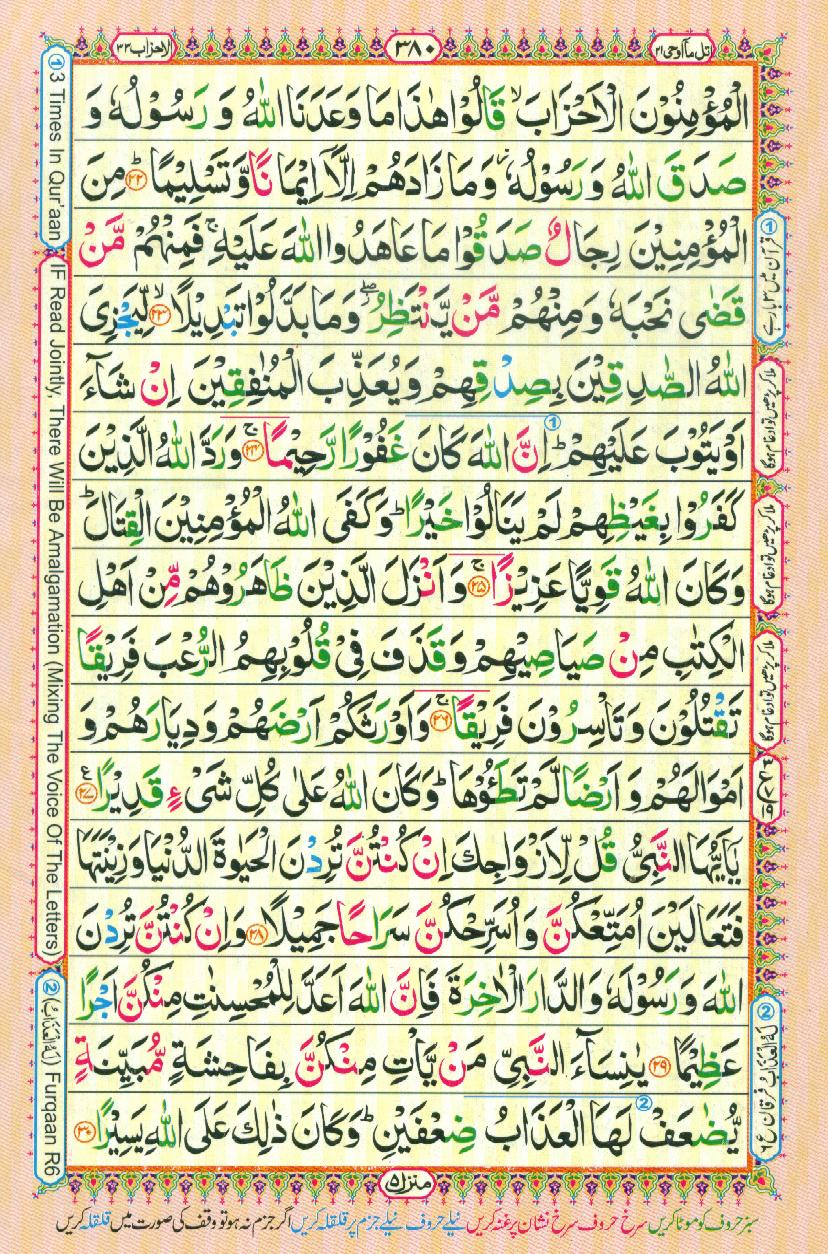 اتل مآ اوحی ۲۱
۳۸۰
الاحزاب ۳۳
الْمُؤْمِنُوْنَ الْاَحْزَابَ ۙ قَالُوْا هٰذَا مَا وَعَدَنَا اللّٰهُ وَ رَسُوْلُهٗ وَ
صَدَقَ اللّٰهُ وَ رَسُوْلُهٗ ۫ وَ مَا زَادَهُمْ اِلَّاۤ اِیْمَانًا وَّ تَسْلِیْمًا ؕ۲۲ مِنَ
الْمُؤْمِنِیْنَ رِجَالٌ صَدَقُوْا مَا عَاهَدُوا اللّٰهَ عَلَیْهِ ۚ فَمِنْهُمْ مَّنْ
قَضٰی نَحْبَهٗ وَ مِنْهُمْ مَّنْ یَّنْتَظِرُ ۖ وَ مَا بَدَّلُوْا تَبْدِیْلًا ۙ۲۳ لِّیَجْزِیَ
اللّٰهُ الصّٰدِقِیْنَ بِصِدْقِهِمْ وَ یُعَذِّبَ الْمُنٰفِقِیْنَ اِنْ شَآءَ
اَوْ یَتُوْبَ عَلَیْهِمْ ؕ اِنَّ اللّٰهَ كَانَ غَفُوْرًا رَّحِیْمًا ۚ۲۴ وَ رَدَّ اللّٰهُ الَّذِیْنَ
كَفَرُوْا بِغَیْظِهِمْ لَمْ یَنَالُوْا خَیْرًا ؕ وَ كَفَی اللّٰهُ الْمُؤْمِنِیْنَ الْقِتَالَ ؕ
وَ كَانَ اللّٰهُ قَوِیًّا عَزِیْزًا ۚ۲۵ وَ اَنْزَلَ الَّذِیْنَ ظَاهَرُوْهُمْ مِّنْ اَهْلِ
الْكِتٰبِ مِنْ صَیَاصِیْهِمْ وَ قَذَفَ فِیْ قُلُوْبِهِمُ الرُّعْبَ فَرِیْقًا
تَقْتُلُوْنَ وَ تَاْسِرُوْنَ فَرِیْقًا ۚ۲۶ وَ اَوْرَثَكُمْ اَرْضَهُمْ وَ دِیَارَهُمْ وَ
اَمْوَالَهُمْ وَ اَرْضًا لَّمْ تَطَـُٔوْهَا ؕ وَ كَانَ اللّٰهُ عَلٰی كُلِّ شَیْءٍ قَدِیْرًا ۲۷
یٰۤاَیُّهَا النَّبِیُّ قُلْ لِّاَزْوَاجِكَ اِنْ كُنْتُنَّ تُرِدْنَ الْحَیٰوةَ الدُّنْیَا وَ زِیْنَتَهَا
فَتَعَالَیْنَ اُمَتِّعْكُنَّ وَ اُسَرِّحْكُنَّ سَرَاحًا جَمِیْلًا ۲۸ وَ اِنْ كُنْتُنَّ تُرِدْنَ
اللّٰهَ وَ رَسُوْلَهٗ وَ الدَّارَ الْاٰخِرَةَ فَاِنَّ اللّٰهَ اَعَدَّ لِلْمُحْسِنٰتِ مِنْكُنَّ اَجْرًا
عَظِیْمًا ۲۹ یٰنِسَآءَ النَّبِیِّ مَنْ یَّاْتِ مِنْكُنَّ بِفَاحِشَةٍ مُّبَیِّنَةٍ
یُّضٰعَفْ لَهَا الْعَذَابُ ضِعْفَیْنِ ؕ وَ كَانَ ذٰلِكَ عَلَی اللّٰهِ یَسِیْرًا ۳۰
منزل ۵
سبز حروف کو موٹا کریں سرخ حروف سرخ نشان پر غنہ کریں نیلے حروف نیلے جزم پر قلقلہ کریں اگر جزم نہ ہو تو وقف کی صورت میں قلقلہ کریں
① 3 Times In Qur'aan
IF Read Jointly, There Will Be Amalgamation (Mixing The Voice Of The Letters)
② (لَهُ الْعَذَابُ) Furqaan R6
① قرآن میں ۳ بار ہے
ملا کر پڑھیں تو ادغام ہوگا
ملا کر پڑھیں تو ادغام ہوگا
ملا کر پڑھیں تو ادغام ہوگا
② لَهُ الْعَذَابُ فرقان ع ۶